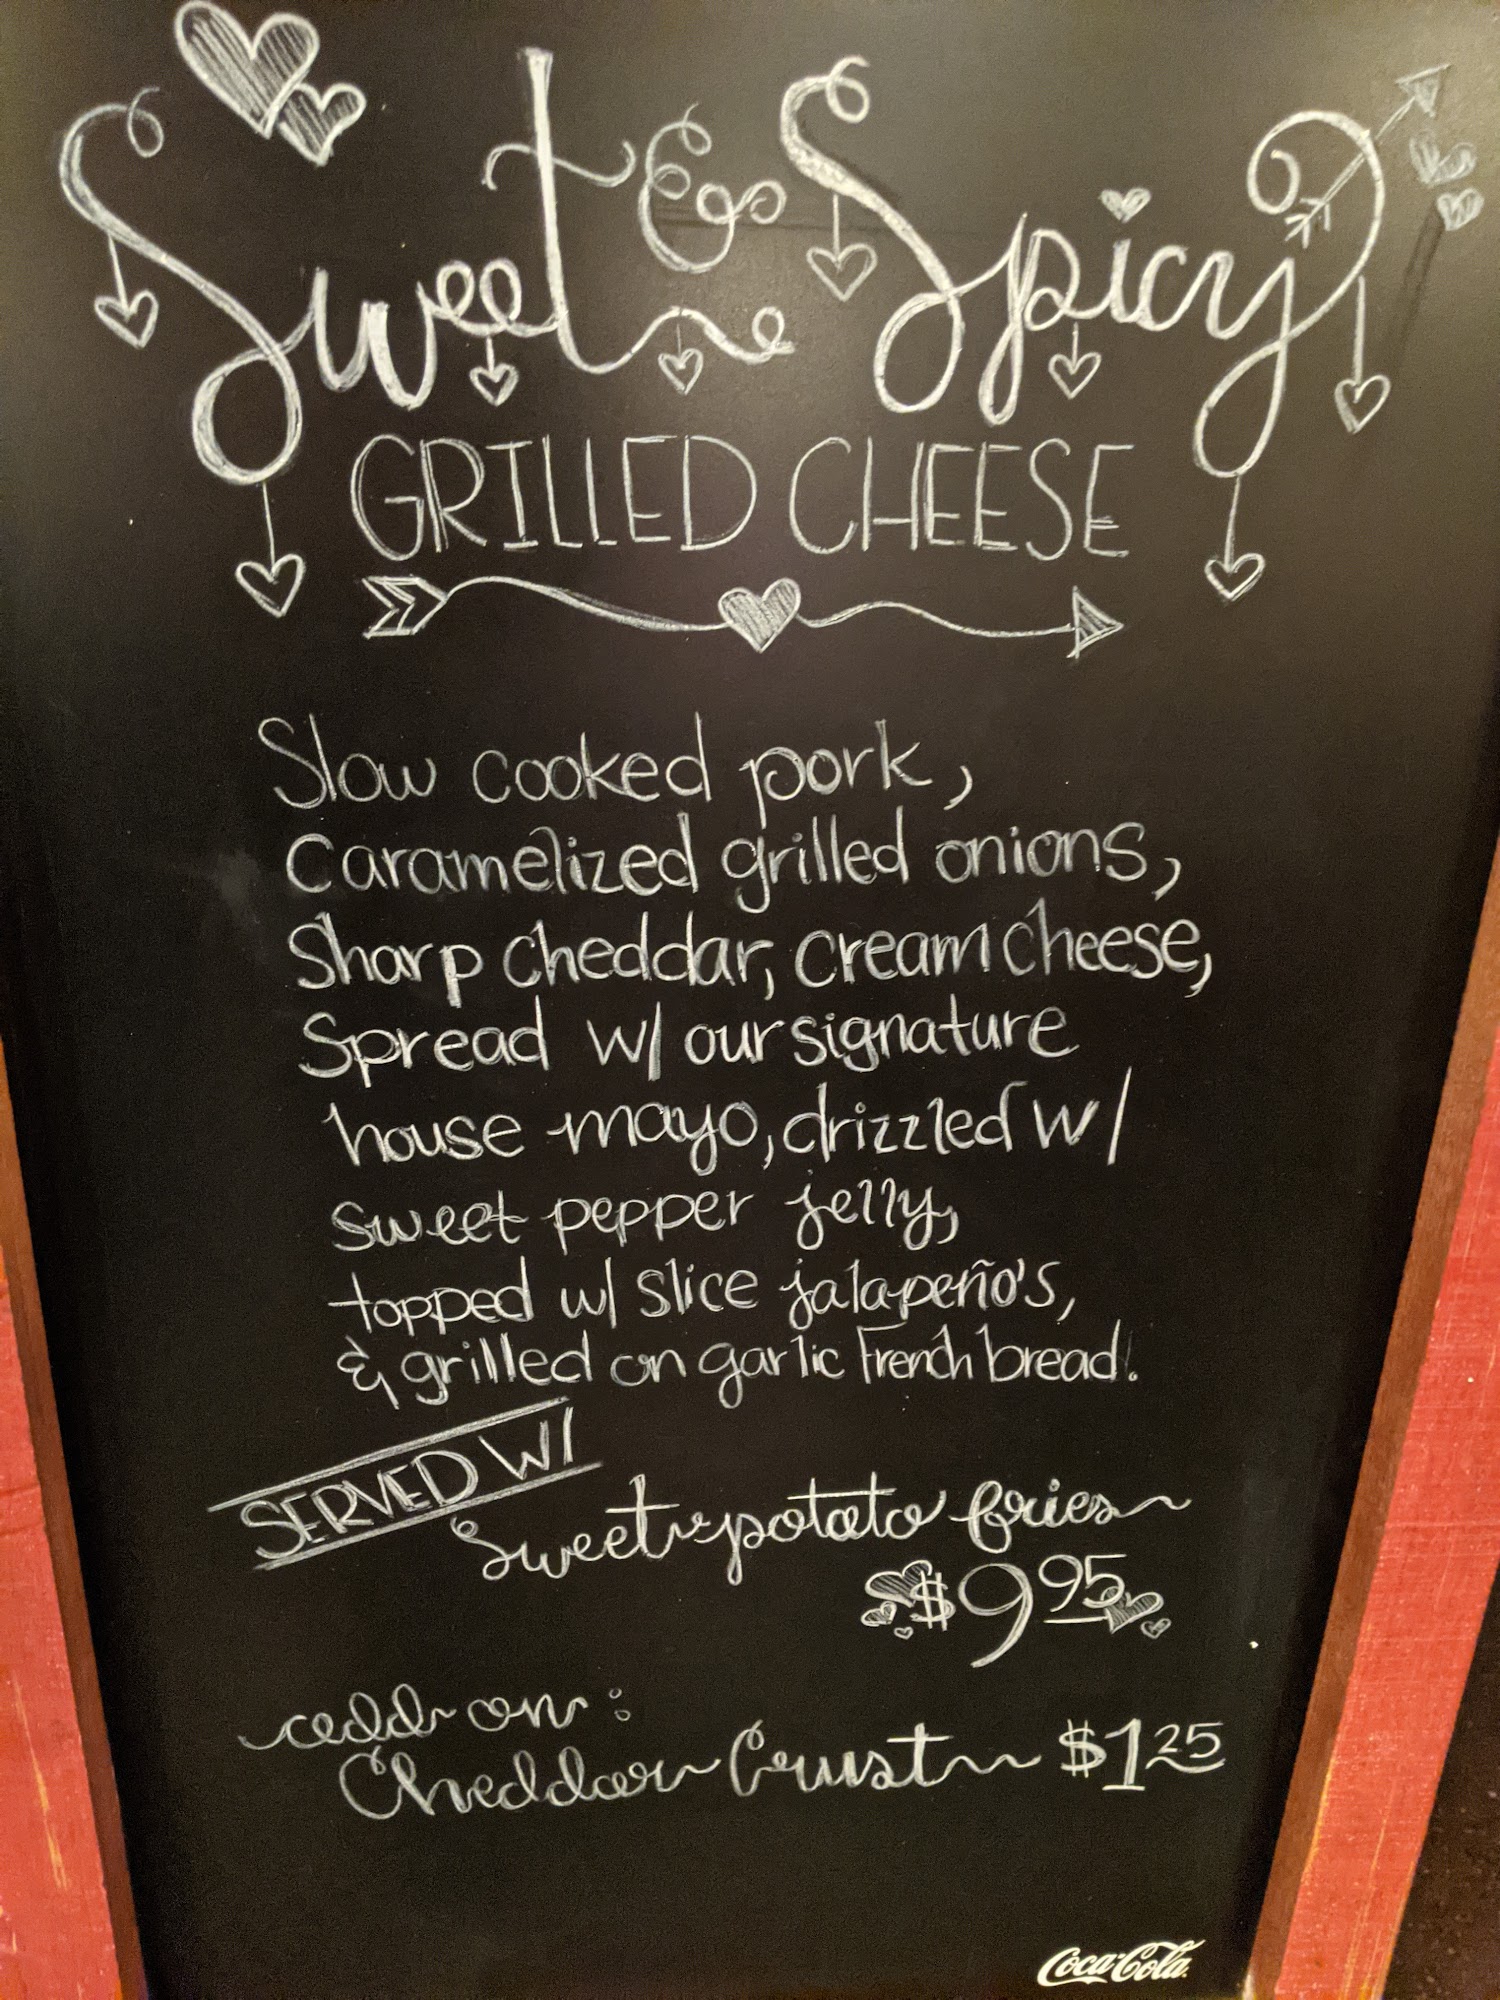 Sweet & Spicy
GRILLED CHEESE
Slow cooked pork,
Caramelized grilled onions,
Sharp cheddar, cream cheese,
Spread w/ our signature
house mayo, drizzled w/
sweet pepper jelly,
topped w/ slice jalapeño's,
& grilled on garlic French bread.
SERVED W/
Sweet potato fries
$9.95
add on:
Cheddar Crust $1.25
Coca-Cola